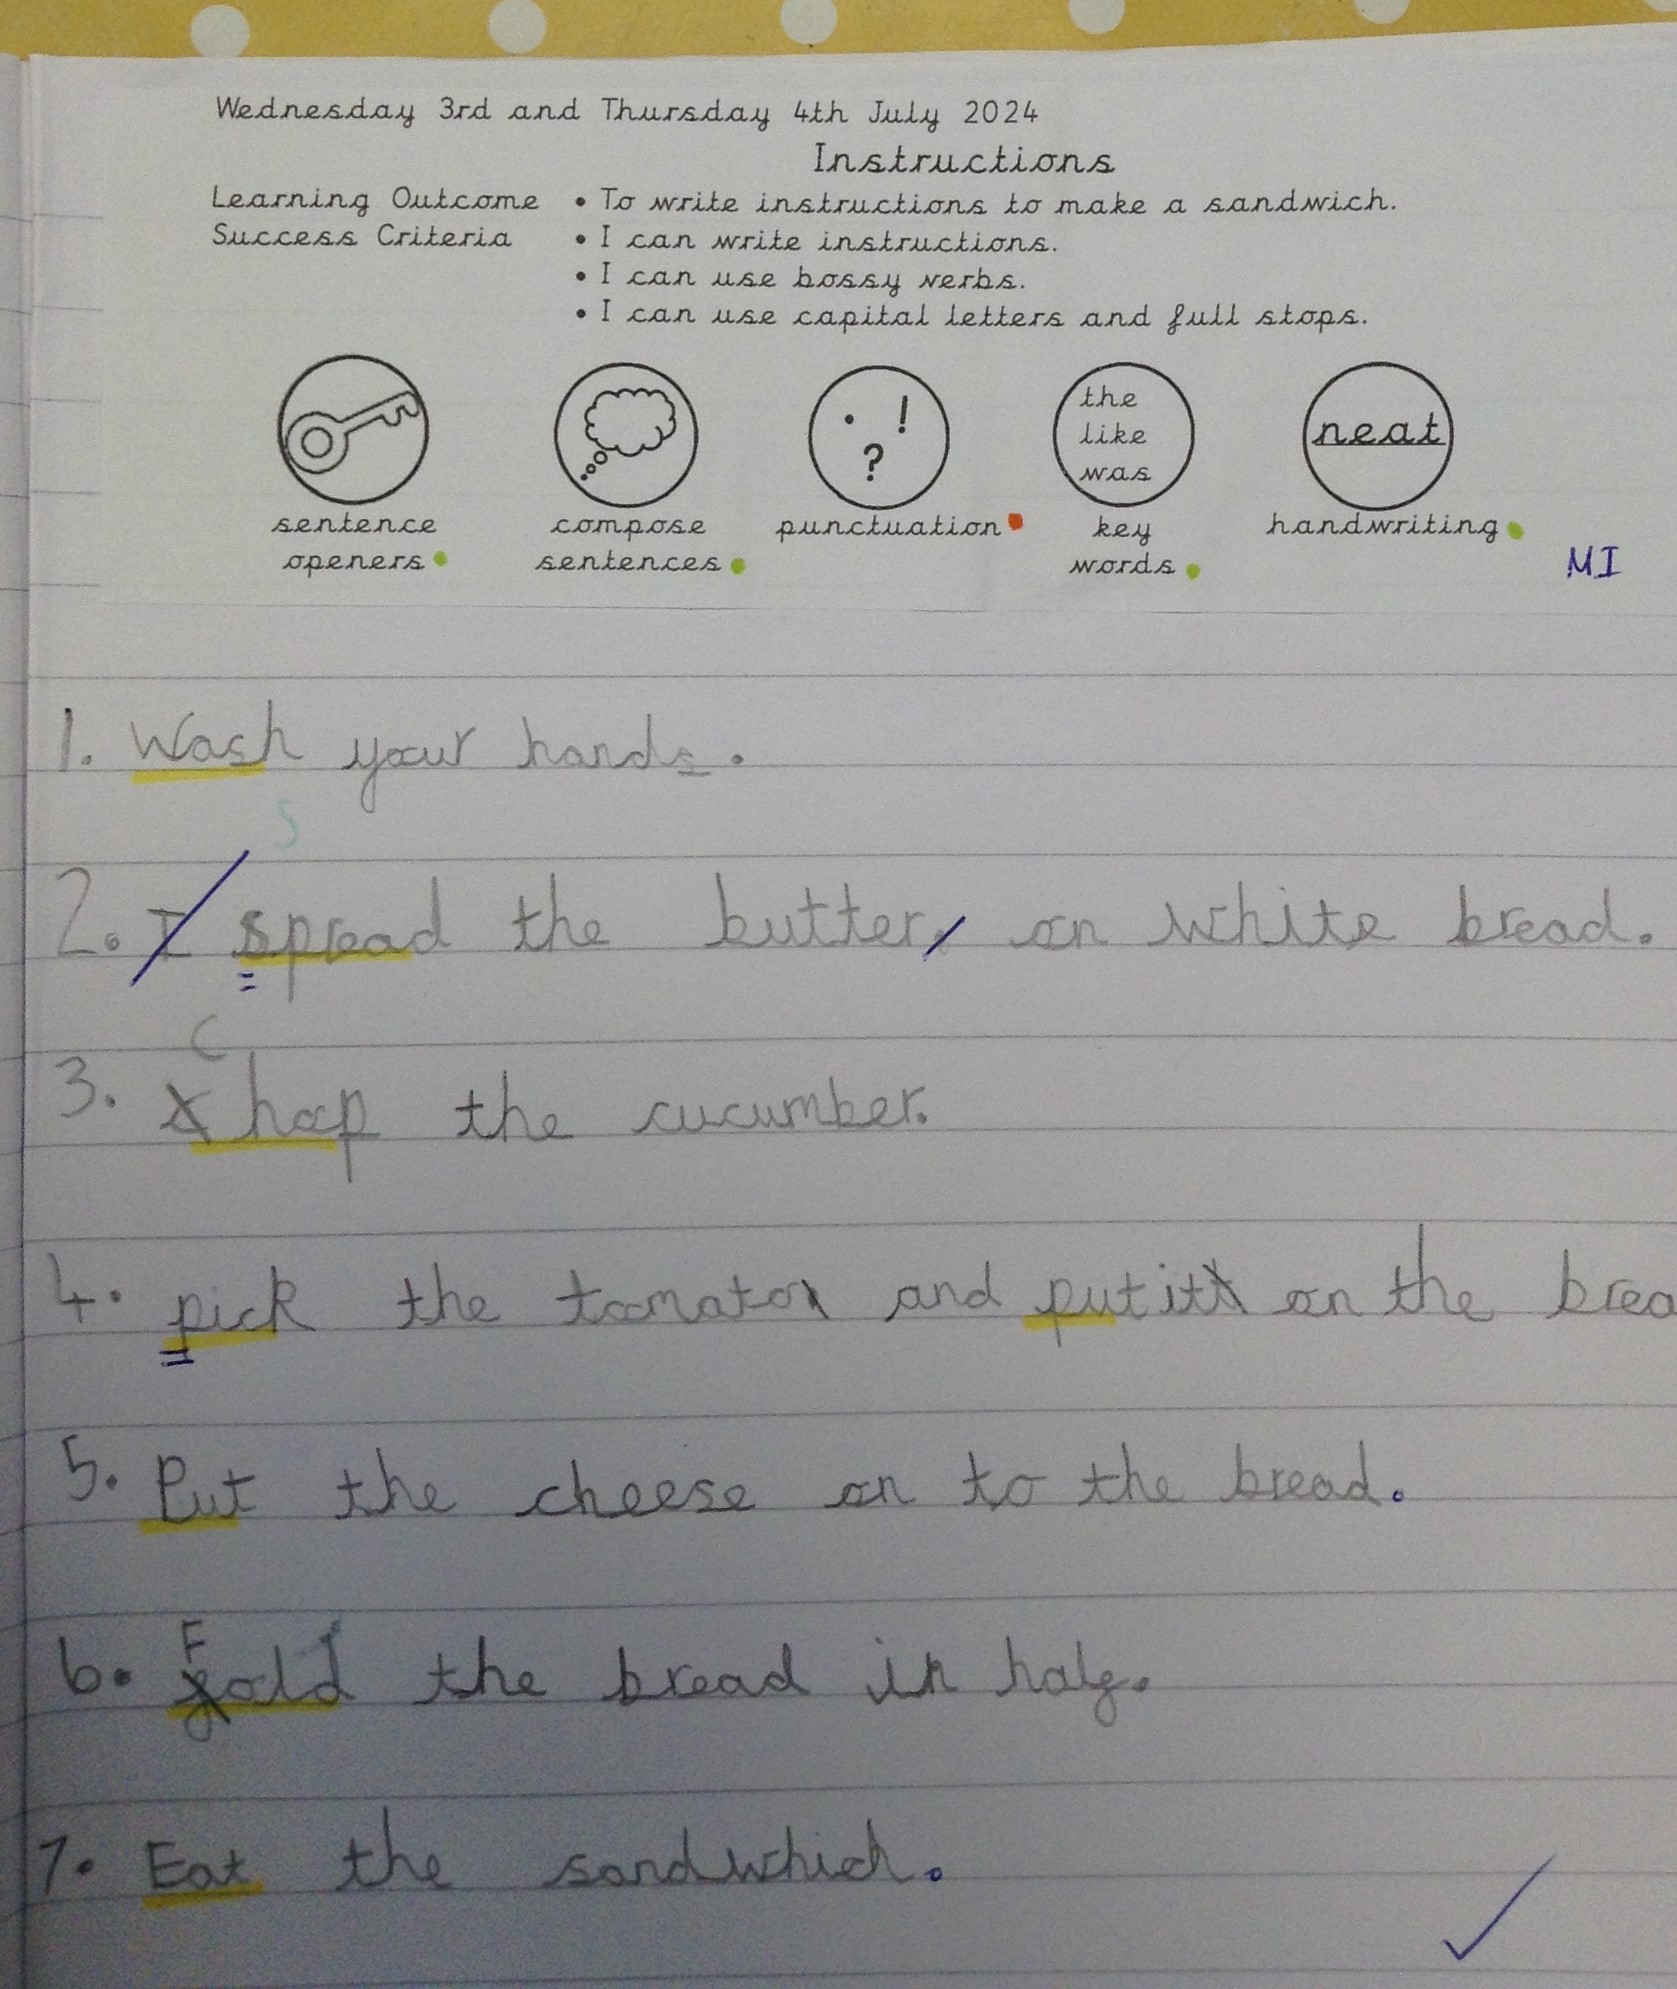 Wednesday 3rd and Thursday 4th July 2024
Instructions
Learning Outcome • To write instructions to make a sandwich.
Success Criteria • I can write instructions.
• I can use bossy verbs.
• I can use capital letters and full stops.
. ! ?
the
like
was
neat
sentence openers
compose sentences
punctuation
key words
handwriting
MI
1. Wash your hands.
S
2. I spread the butter. on white bread.
C
3. chop the cucumber.
4. pick the tomato and put it on the brea
5. Put the cheese on to the bread.
F
6. fold the bread in half.
7. Eat the sandwhich.